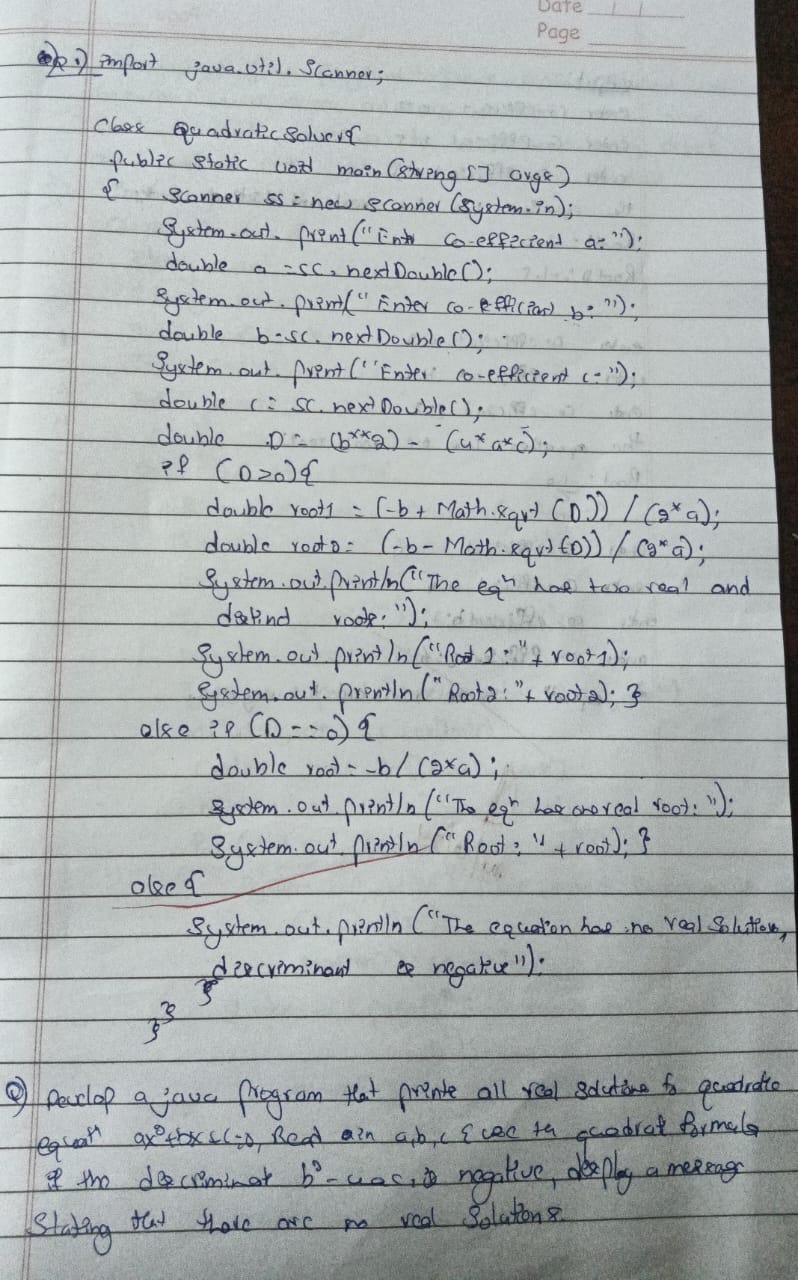 Date
Page
1) import java.util.Scanner;
class QuadraticSolver{
public static void main(String [] args)
{ Scanner ss = new Scanner(System.in);
System.out.print("Entr co-efficient a=");
double a = sc.nextDouble();
System.out.print("Enter co-efficient b=");
double b=sc.nextDouble();
System.out.print("Enter co-efficient c=");
double c= sc.nextDouble();
double D = (b**2) - (4*a*c);
if (D>0){
double root1 = (-b + Math.sqrt (D)) / (2*a);
double root2= (-b- Math.sqrt(D)) / (2*a);
System.out.println("The eqn has two real and
roots:");
System.out println("Root 1:"+ root1);
System.out.println("Root2:"+ root2); }
else if (D==0) {
double root = -b/(2*a);
System.out.println("The eqn has one real root:");
System.out.println("Root:"+ root); }
else {
System.out.println("The equation has no real solution,
discriminant is negative");
}
}
}
Q) Develop a java program that prints all real solutions to quadratic
ax²+bx+c=0, Read in a,b,c & use the formula
If the b²-4ac, is negative, display a message
Stating that there are no real solutions.